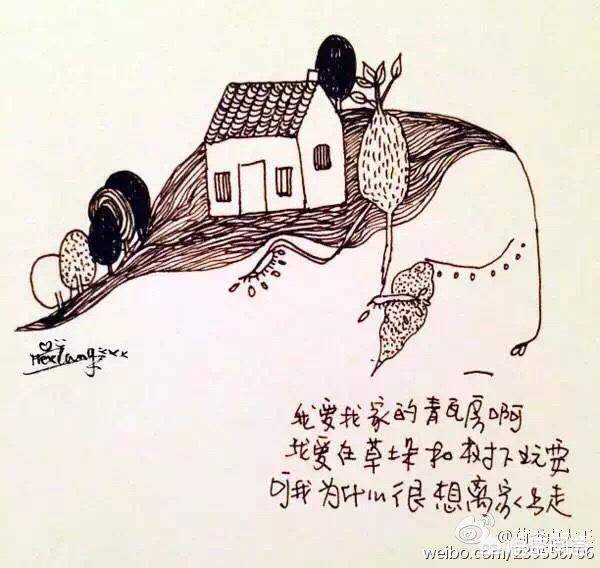 我爱我家的青瓦房啊
我爱在草垛和树下玩耍
可我为什么很想离家出走